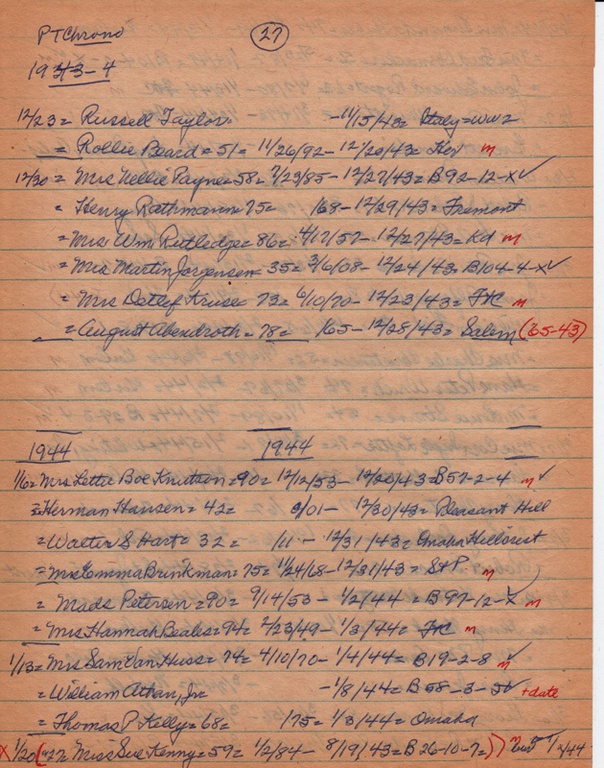 PT Chrono 27
1943-4
12/23 = Russell Taylor -11/15/43 = Italy = WW2
= Rollie Beard = 51 = 11/26/92 - 12/20/43 = m
12/30 = Mrs Nellie Payne = 58 = 7/23/85 - 12/27/43 = B92-12-x ✓
= Henry Rathmann = 75 = /68 - 12/29/43 = Fremont
= Mrs Wm Rutledge = 86 = 4/17/57 - 12/27/43 = Kd m
= Mrs Martin Jorgensen = 35 = 3/6/08 - 12/24/43 = B104-4-x ✓
= Mrs Detlef Kruse = 73 = 6/10/70 - 12/23/43 = m
= August Abendroth = 78 = /65 - 12/28/43 = Salem (65-43)
1944 1944
1/6 = Mrs Lettie Boe Knutson = 90 = 12/12/53 - 12/20/43 = B57-2-4 m ✓
= Herman Hansen = 42 = /01 - 12/30/43 = Pleasant Hill
= Walter S Hart = 32 = /11 - 12/31/43 = Omaha Hillcrest
= Mrs Emma Brinkman = 75 = 1/24/68 - 12/31/43 = S+P m
= Mads Petersen = 90 = 9/14/53 - 1/2/44 = B97-12-x m
= Mrs Hannah Beales = 94 = 2/23/49 - 1/3/44 = m
1/13 = Mrs Sam Van Huss = 74 = 4/10/70 - 1/4/44 = B19-2-8 m ✓
= William Athan, Jr -1/8/44 = B58-3-5 ✓ +date
= Thomas P Kelly = 68 = /75 = 1/3/44 = Omaha
x 1/20 ( Miss Sue Kenny = 59 = 1/2/84 - 8/19/43 = B26-10-7 = ) m /44